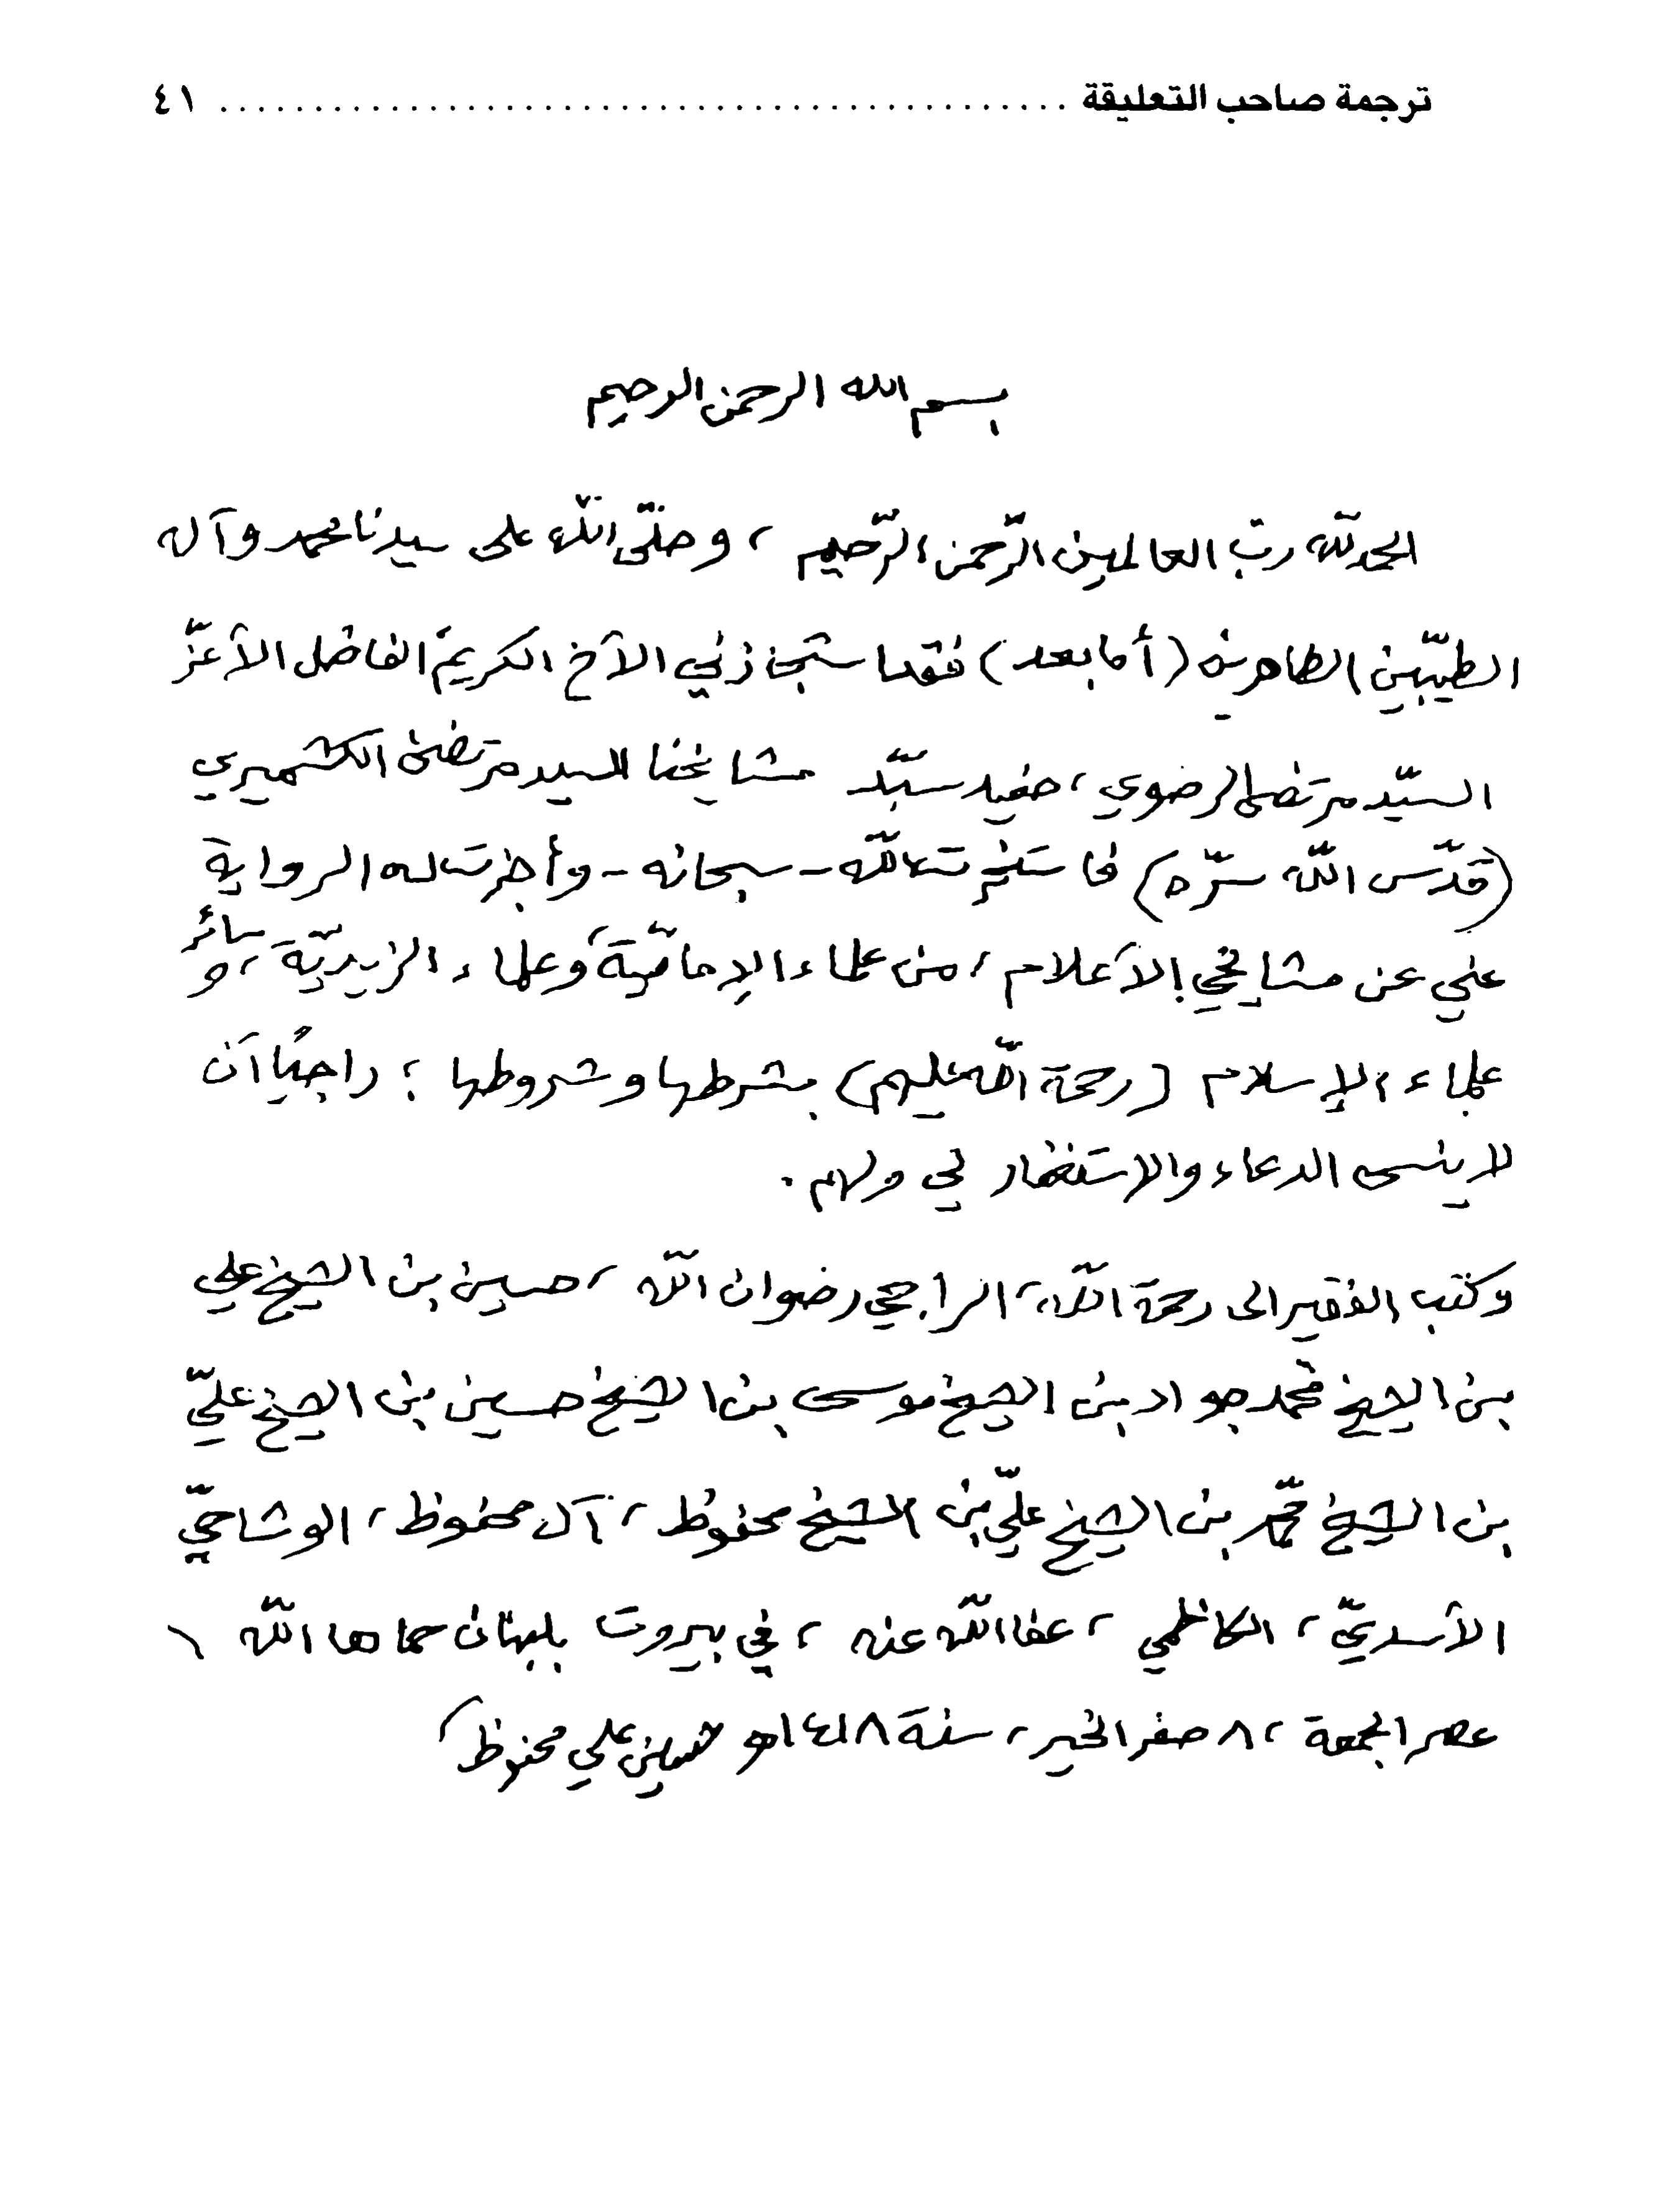 ترجمة صاحب التعليقة ........................................ ٤١
بسم الله الرحمن الرحيم
الحمد لله ربّ العالمين الرّحمن الرّحيم ، وصلّى الله على سيدنا محمد وآله
الطيّبين الطاهرين (أما بعد) فقد استجازني الأخ الكريم الفاضل الأعزّ
السيّد مرتضى الرضوي ، حفيد سيّد مشايخنا السيد مرتضى الكشميري
(قدّس الله سرّه) فاستخرت الله - سبحانه - وأجزت له الرواية
عني عن مشايخي الأعلام ، من علماء الإماميّة وعلماء الزيديّة ، وسائر
علماء الإسلام (رحمة الله عليهم) بشرطها وشروطها ؛ راجيًا أن
لا ينسى الدعاء والاستغفار لي ولهم .
وكتب الفقير الى رحمة الله ، الراجي رضوان الله ، حسين بن الشيخ علي
بن الشيخ محمد جواد بن الشيخ موسى بن الشيخ حسين بن الشيخ عليّ
بن الشيخ محمّد بن الشيخ عليّ بن الشيخ محفوظ ، آل محفوظ ، الوشاحيّ
الأسديّ ، الكاظمي ، عفا الله عنه ، في بيروت بلبنان حماها الله ،
عصر الجمعة ، ٨ صفر الخير ، سنة ١٤١٨هـ حسين علي محفوظ